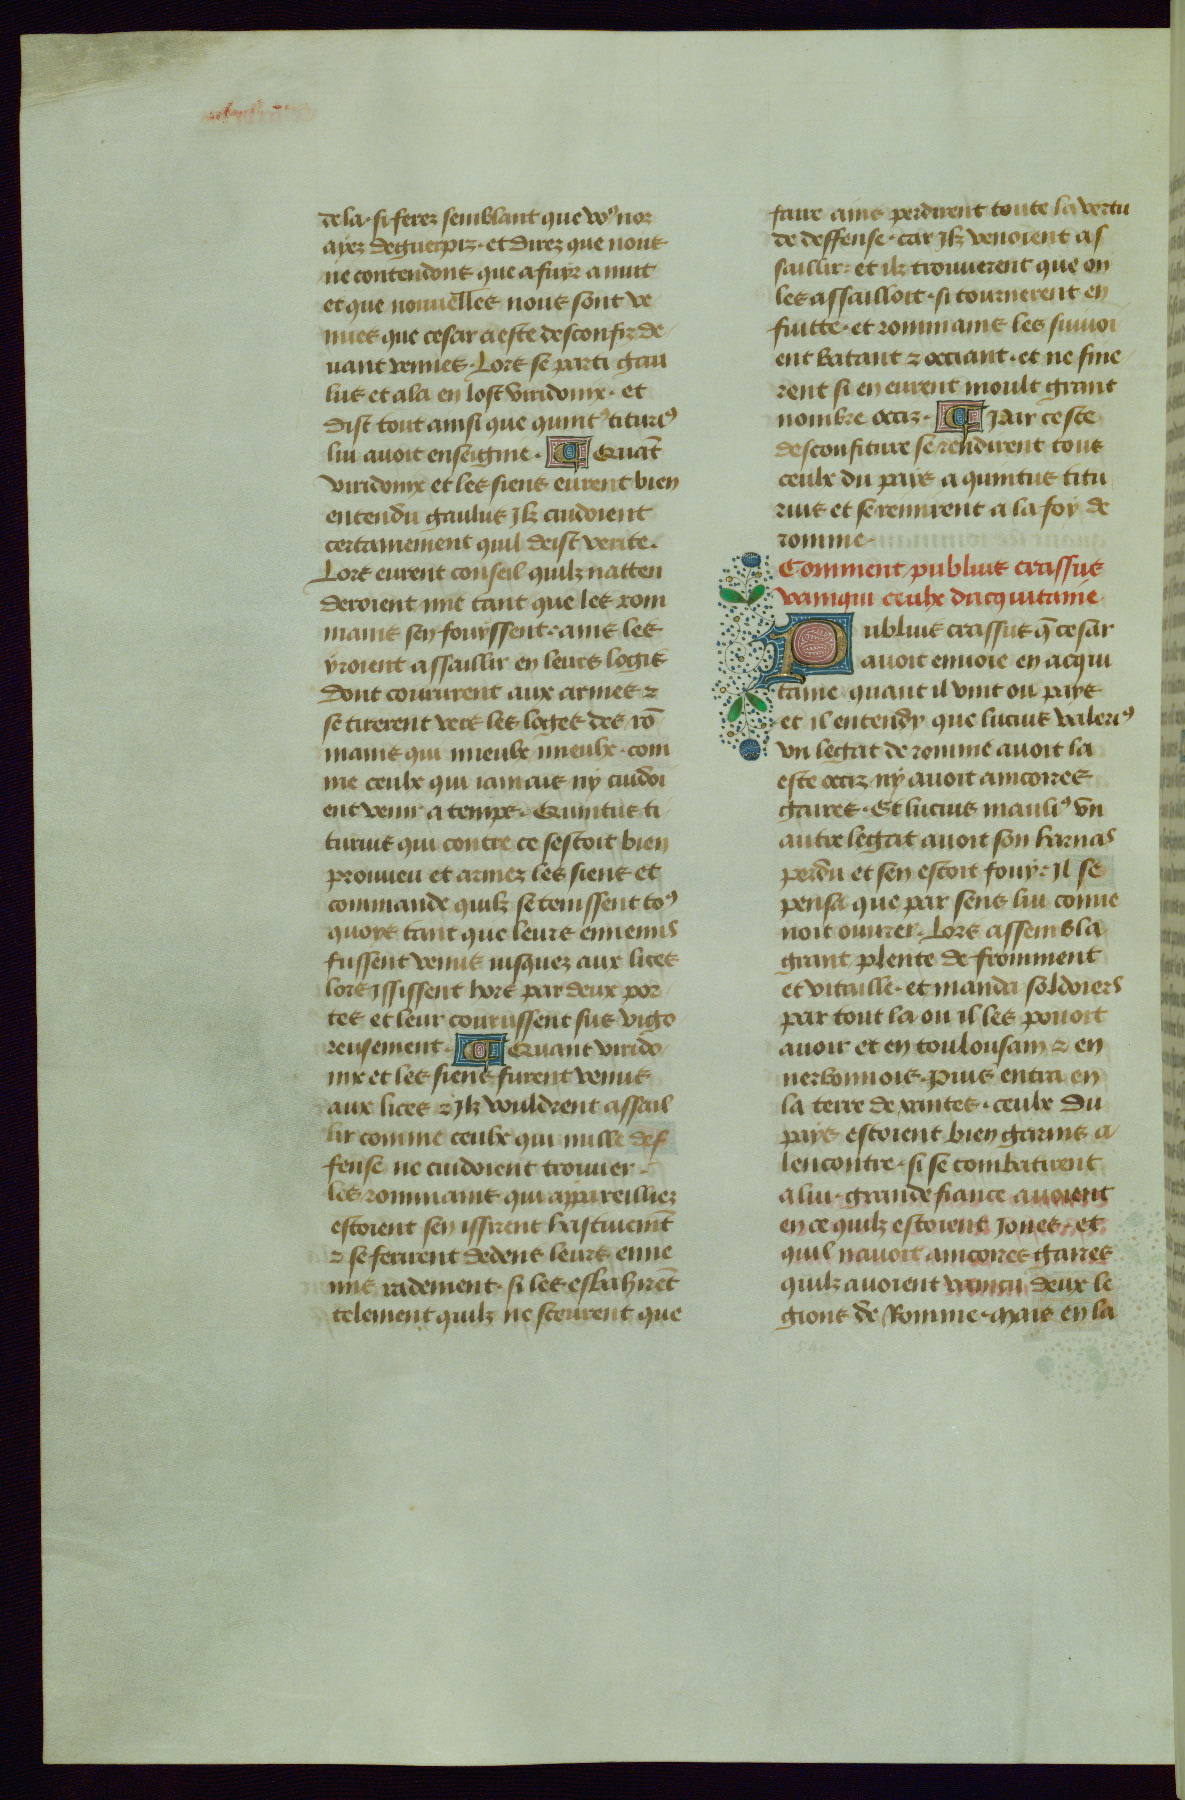 de la. si ferez semblant que vo⁹ nor
ayez deguerpiz. et direz que nous
ne contendons que a fuyr a nuit
et que nouuelles nous sont ve
nues que cesar a este desconfiz de
uant vennes. Lors se parti gau
lus et ala en lost viridomx. et
dist tout ainsi que quint⁹ tituri⁹
lui auoit enseignie. Quāt
viridomx et les siens eurent bien
entendu gaulus Ilz cuidoient
certainement quil deist verite.
Lors eurent conseil quilz natten
deroient mie tant que les rom
mains sen fouyssent. ains les
yroient assaillir en leurs logis
Dont coururent aux armes ⁊
se tirerent vers les loges des rō
mains qui mieulx mieulx. com
me ceulx qui iamais ny cuidoi
ent venir a temps. Quintus ti
turius qui contre ce sestoit bien
prouueu et armez les siens et
commande quilz se tenissent to⁹
quoys tant que leurs ennemis
fussent venus iusquez aux lices
lors Ississent hors par deux por
tes et leur courussent sus vigo
reusement. Quant virido
mx et les siens furent venus
aux lices ⁊ Ilz vouldrent assail
lir comme ceulx qui nulle def
fense ne cuidoient trouuer.
les rommains qui appareilliez
estoient sen issirent hastiuemt̄
⁊ se ferirent dedens leurs enne
mis radement. si les esbahirēt
telement quilz ne sceurent que
faire ains perdirent toute la vertu
de deffense. car Ilz venoient as
saillir: et ilz trouuerent que on
les assailloit. si tournerent en
fuitte. et rommains les suiuoi
ent batant ⁊ occiant. et ne fine
rent si en eurent moult grant
nombre occiz. Par ceste
desconfiture se rendirent tous
ceulx du pays a quintus titu
rius et se remirent a la foy de
romme.
Comment publius crassus
vainqui ceulx dacquitaine.
Publius crassus q̄ cesar
auoit enuoie en acqui
taine quant il vint ou pays
et il entendy que lucius valeri⁹
vn legat de romme auoit la
este occiz ny auoit aincores
gaires. Et lucius mauli⁹ vn
autre legat auoit son harnas
perdu et sen estoit fouy: Il se
pensa que par sens lui conue
noit ouurer. Lors assembla
grant plente de fromment
et vitaille. et manda soldoiers
par tout la ou il les pouoit
auoir et en toulousain ⁊ en
nerbonnois. Puis entra en
la terre de xaintes. ceulx du
pays estoient bien garnis a
lencontre. si se combatirent
a lui. grande fiance auoient
en ce quilz estoient Jones. et
quil nauoit aincores gaires
quilz auoient vaincu deux le
gions de Romme. Mais en la